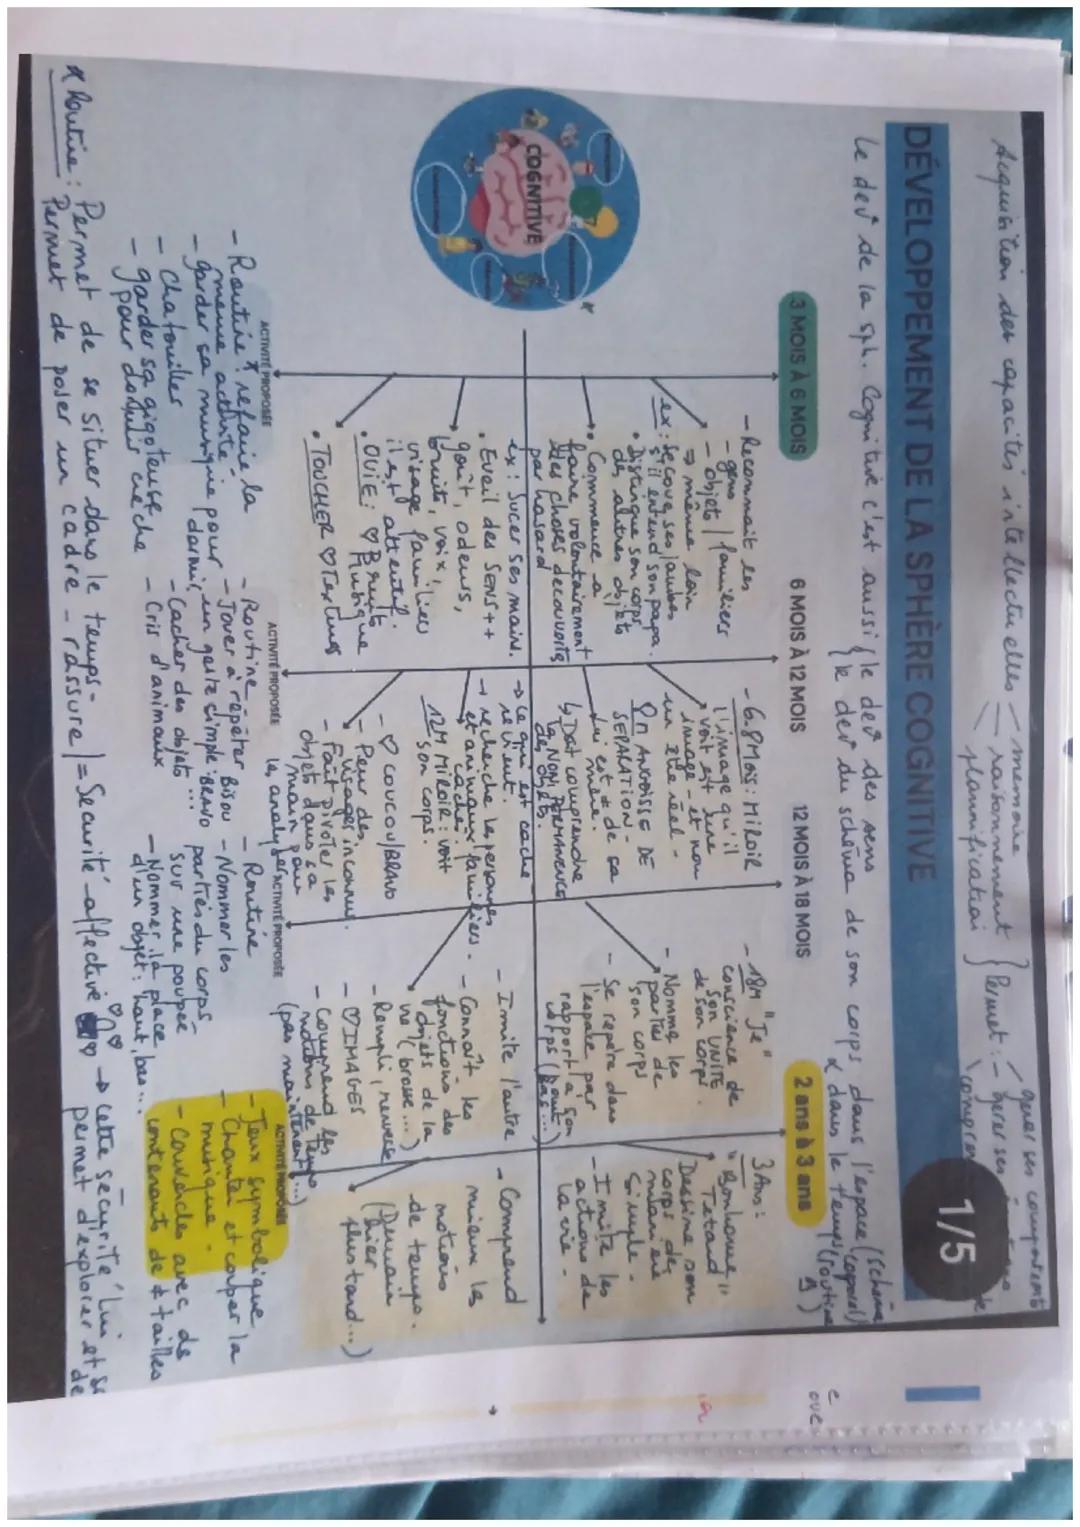 Acquisition des capacités intellectuelles
mémoire
raisonnement
plannification
Permet :
gérer ses comportements
- gérer ses
1/5
DÉVELOPPEMENT DE LA SPHÈRE COGNITIVE
Le devt de la sph. Cognitive c'est aussi
le devt des sens
le devt du schéma de son corps dans l'espace (schéma corporel)
& dans le temps (routine)
COGNITIVE
3 MOIS À 6 MOIS
- Reconnait les
- gens
- objets
familiers
⇒ même loin
ex : secoue ses jambes
s'il entend son papa.
• Distingue son corps
des autres objets
• Commence à
faire volontairement
des choses découvertes
par hasard
ex : Sucer ses mains.
• Eveil des SENS ++
goût, odeurs,
bruits, voix,
visage familiers
il est attentif.
• OUIE : ♡ Bruits
Musique
• TOUCHER ♡ Textures
ACTIVITÉ PROPOSÉE
- Routine * refaire la
même activité
- garder sa musique pour dormir
- Chatouiller
- garder sa gigoteuse
pour dormir crèche
6 MOIS À 12 MOIS
- 6-8 Mois : MiRoiR
l'image qu'il
voit est une
image - et non
un être réel -
9M ANGOISSE DE
SEPARATION -
Lui est ≠ de sa
mère.
↳ Doit comprendre
la NON PERMANENCE
des objets.
→ Ce qui est caché
revient.
→ recherche les personnes
et animaux familiers
cachés.
12M MiRoiR : voit
son corps.
- ♡ coucou/BRAVO
- Peur des
visages inconnus.
- Fait pivoter les
objets dans sa
main pour
les analyser
ACTIVITÉ PROPOSÉE
- Routine
- Jouer à répéter
un geste simple BRAVO
Bisou
- Cacher des objets ...
- Cris d'animaux
12 MOIS À 18 MOIS
- 18M "Je"
conscience de
son UNITE
de son corps.
- Nomme les
parties de
son corps
- Se repère dans
l'espace par
rapport à son
corps (haut, bas ...)
- Imite l'autre
- Connaît les
fonctions des
objets de la
vie (brosse ...)
- Rempli, renverse
- ♡ IMAGES
- Comprend les
notions de temps
(pas maintenant ...)
ACTIVITÉ PROPOSÉE
- Routine
- Nommer les
parties du corps
sur une poupée
- Nommer la place
d'un objet : haut, bas ...
2 ans à 3 ans
3 Ans :
"Bonhomme"
Tétard
Dessine son
corps de
manière
Simple -
- Imite les
actions de
la vie -
- Comprend
mieux les
notions
de temps.
(Demain
hier
plus tard ...)
ACTIVITÉ PROPOSÉE
- Jeux symbolique
- Chanter et couper la
musique -
- Couvercles avec des
contenants de ≠ tailles
* Routine : Permet de se situer dans le temps -
Permet de poser un cadre - rassure
= Sécurité affective ♡♡ → cette sécurité lui
permet d'explorer et de